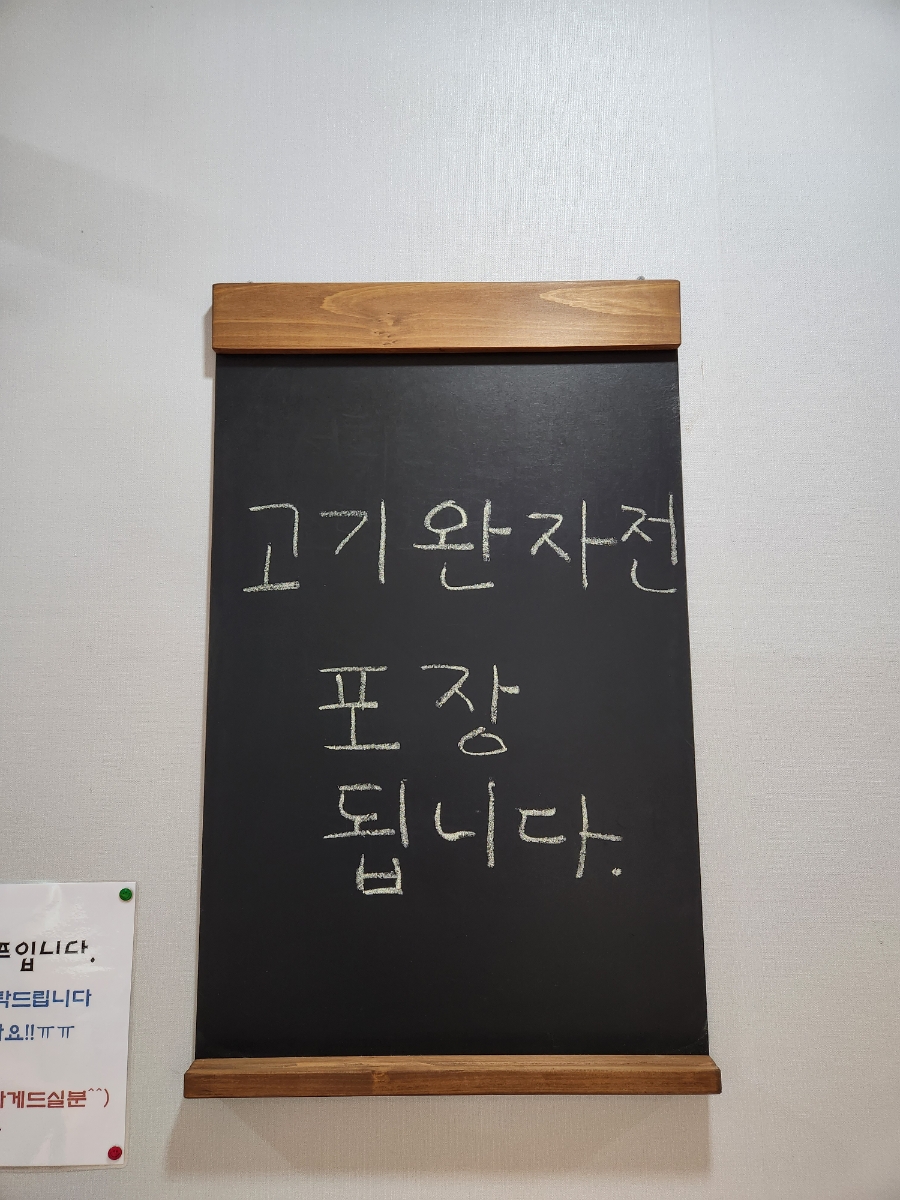 고기완자전
포장
됩니다.
입니다.
드립니다
요!!ㅠㅠ
게드실분^^)